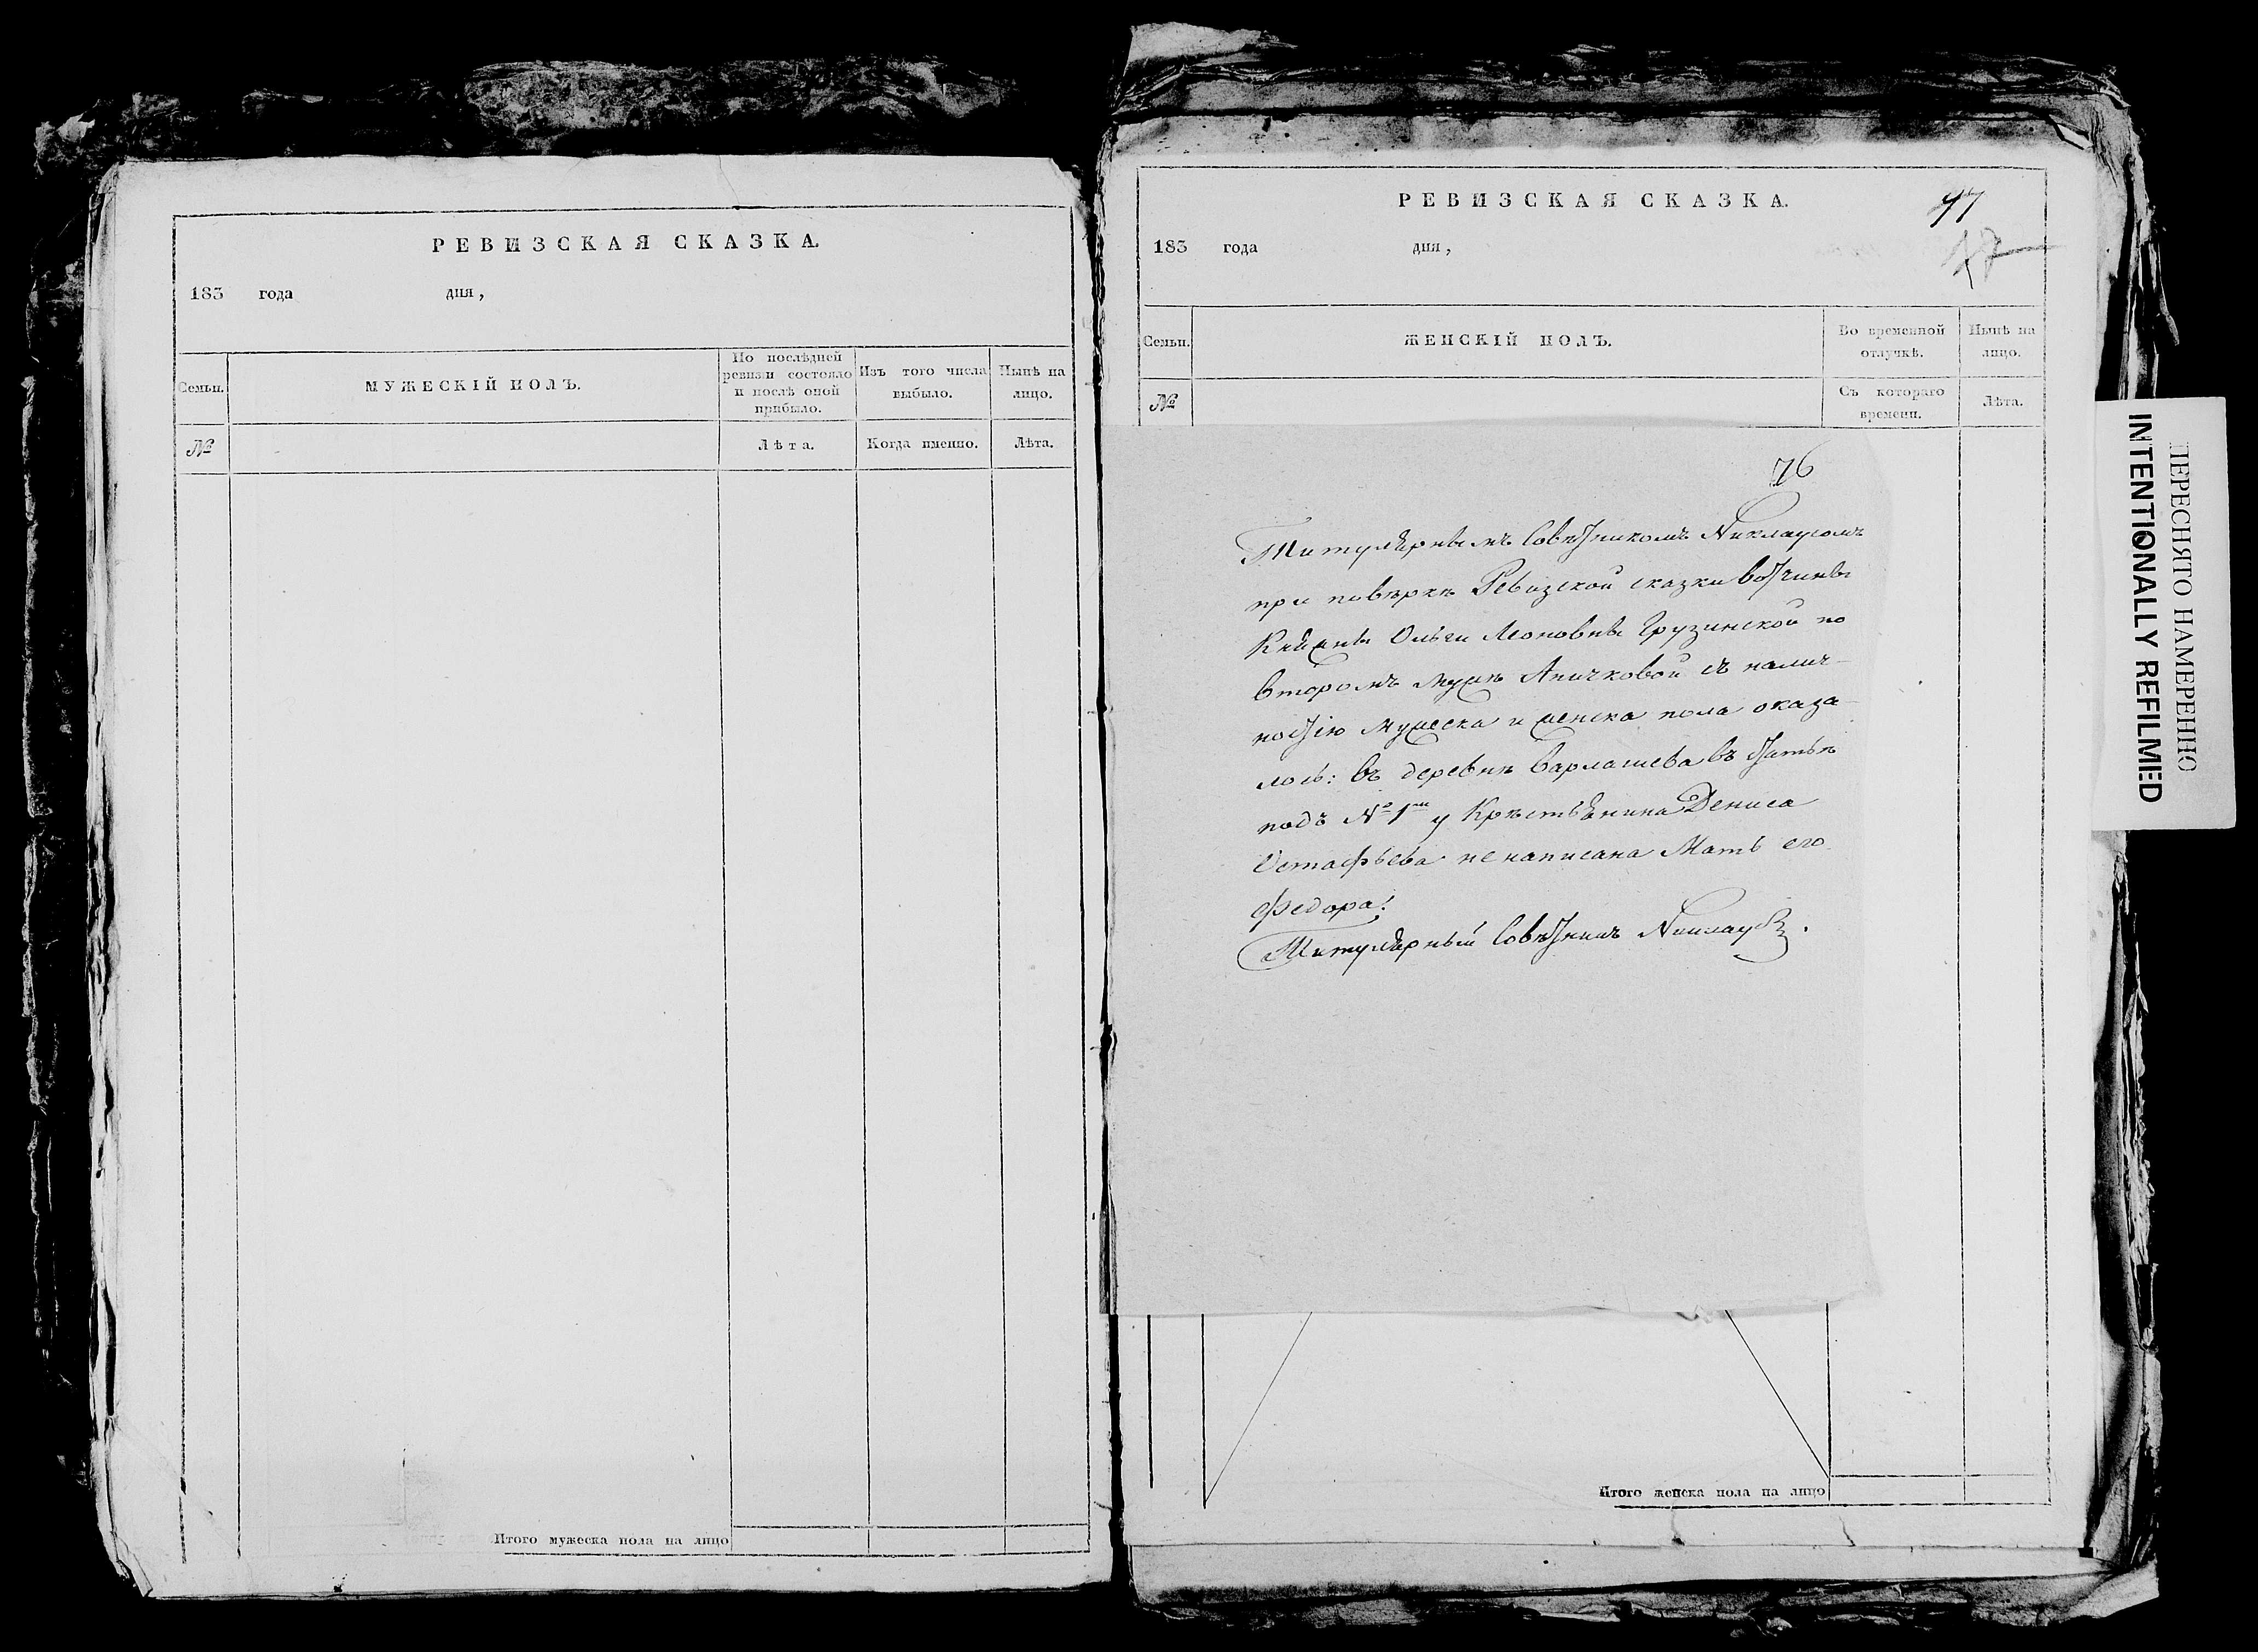 РЕВИЗСКАЯ СКАЗКА.
183 года дня,
Семьи.
МУЖЕСКІЙ ПОЛЪ.
По послѣдней ревизіи состояло и послѣ оной прибыло.
Изъ того числа выбыло.
Нынѣ на лицо.
№
Лѣта.
Когда именно.
Лѣта.
Итого мужеска пола на лицо
РЕВИЗСКАЯ СКАЗКА.
47
47
183 года дня,
Семьи.
ЖЕНСКІЙ ПОЛЪ.
Во временной отлучкѣ.
Нынѣ на лицо.
№
Съ котораго времени.
Лѣта.
76
Титулярнымъ Совѣтникомъ
при повѣркѣ Ревизской сказки вотчины
Княжны Ольги Леоновны Грузинской по
второмъ мужѣ Аничковой съ налич-
ностію мужеска и женска пола оказа-
лось: въ деревнѣ Варлашева въ статьѣ
подъ № 1м у Крѣстьянина Дениса
Остафьева не написана Мать его
Федора:
Титулярный Совѣтникъ
Итого женска пола на лицо
ПЕРЕСНЯТО НАМЕРЕННО
INTENTIONALLY REFILMED